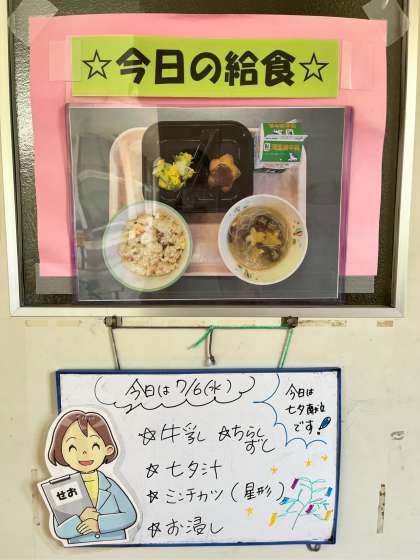 ☆今日の給食☆
今日は7/6(水)
今日は
七夕献立
です!
☆牛乳 ☆ちらし
ずし
☆七夕汁
☆ミンチカツ(星形)
☆お浸し
せお